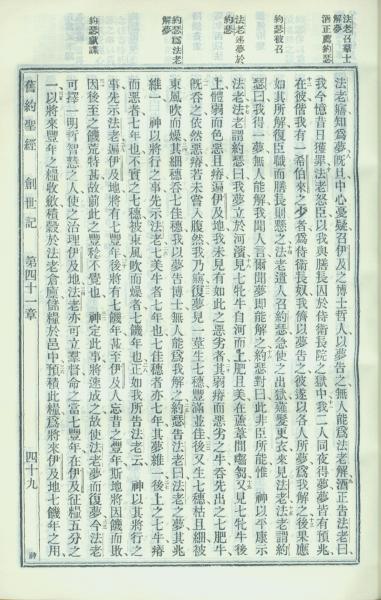 法老召羣士
解夢
酒正薦約瑟
約瑟被召
法老述夢於
約瑟
約瑟爲法老
解夢
約瑟獻謀
法老寤知爲夢既旦中心憂疑召伊及之博士哲人以夢告之無人能爲法老解酒正告法老曰
我今憶昔日獲罪法老怒臣以我與膳長囚於侍衛長院之獄中我二人同夜得夢夢皆有預兆
在彼偕我有一希伯來之少者爲侍衛長奴我儕以夢告之彼遂以各人所夢爲我解之後果應
如其所解復臣職而膳長則懸之法老遣人召約瑟急使之出獄薙髮更衣來見法老法老謂約
瑟曰我得一夢無人能解我聞人言爾聞夢即能解之約瑟對曰此非臣所能惟 神以平康示
法老法老謂約瑟曰我夢立於河濱見七牝牛自河而上肥且美在蘆葦間噬芻又見七牝牛後
上體弱而色惡且瘠遍伊及地我未見有如此之惡劣者其弱瘠而惡劣之牛吞先出之七肥牛
既吞之依然惡瘠若未嘗入腹然我乃寤復夢見一莖生七穗豐滿並佳後又生七穗枯且細被
東風吹而燥其細穗吞七佳穗我以夢告博士無人能爲我解之約瑟告法老曰法老之夢其兆
維一 神以所將行之事先示法老七美牛者七年也七佳穗者亦七年其夢維一後上之七牛瘠
而惡者七年也不實之七穗被東風吹而燥者七饑年也正如我所告法老云 神以其將行之
事先示法老遍伊及地將有七豐年後將有七饑年甚至伊及人忘昔之豐年斯地將因饑而敗
因後至之饑荒特甚故前此之豐稔不覺也 神定此事將速成之故使法老夢而復夢今法老
可擇一明哲智慧之人使之治理伊及地法老亦可立羣督命之當七豐年在伊及征糧五分之
一以將來豐年之糧收斂積穀於法老倉廩儲糧於邑中預積此糧爲將來伊及地七饑年之用
舊約聖經 創世記 第四十一章 四十九